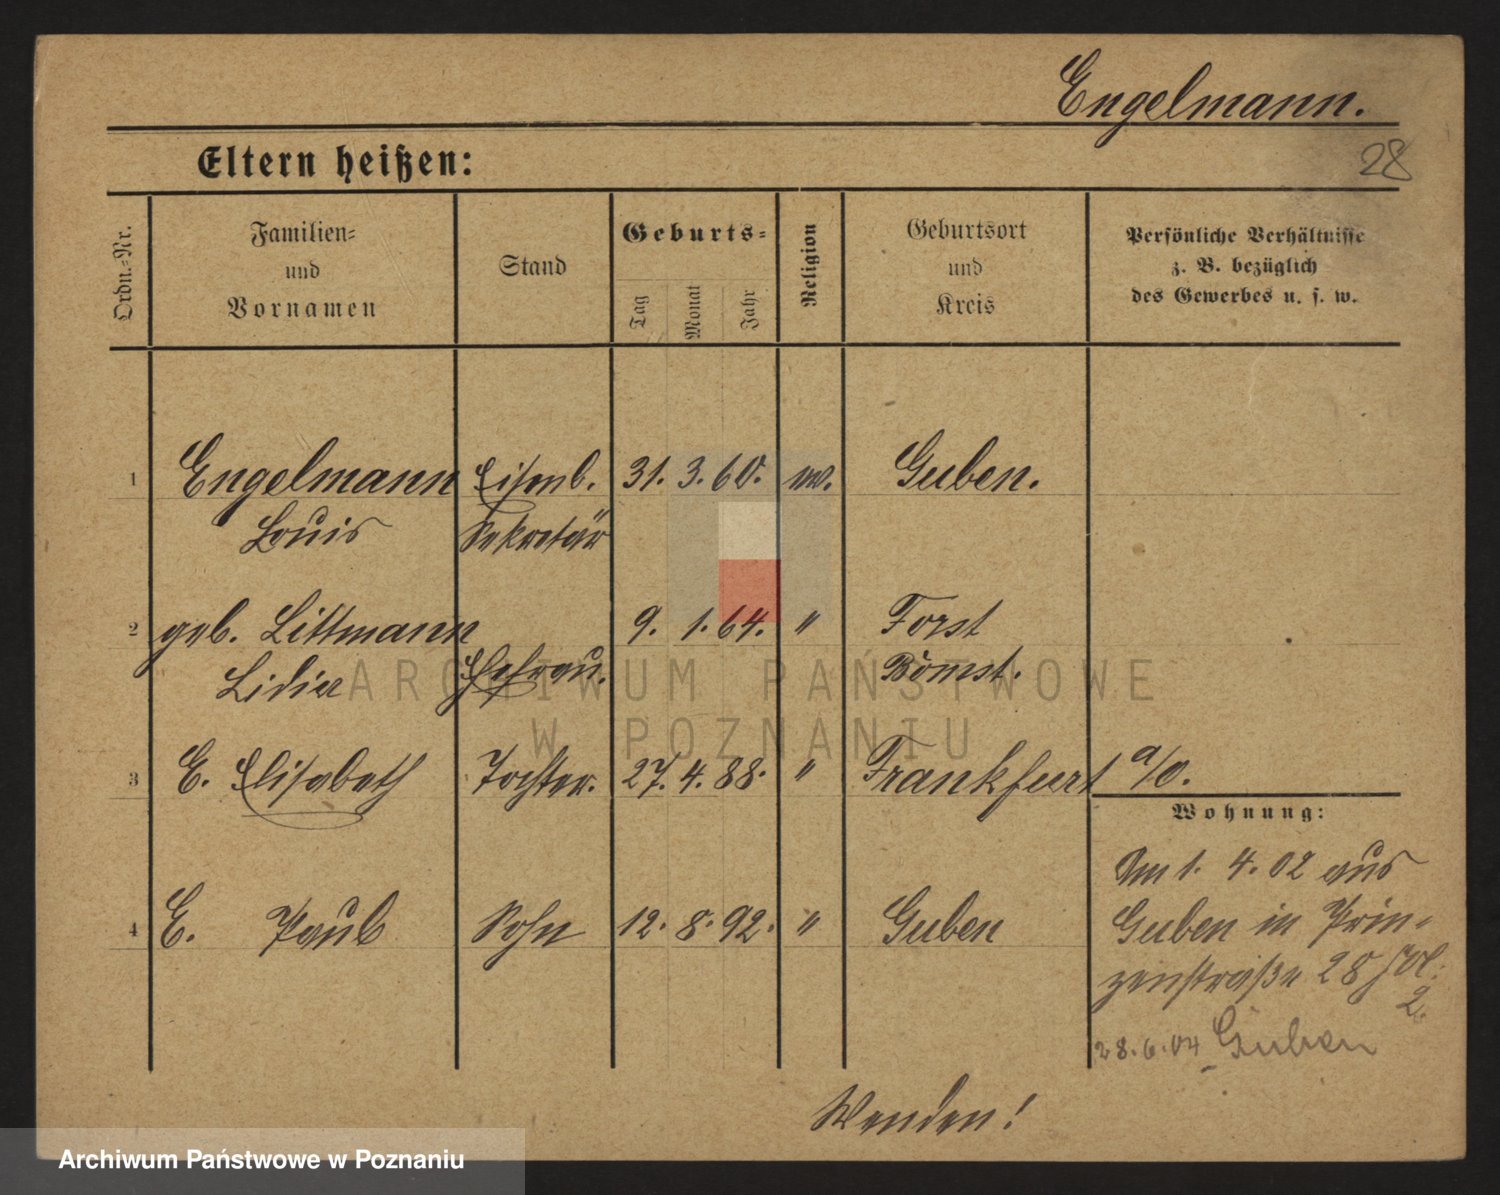 Engelmann.
28
Eltern heißen:
Ordn.-Nr.
Familien-
und
Vornamen
Stand
Geburts-
Tag
Monat
Jahr
Religion
Geburtsort
und
Kreis
Persönliche Verhältnisse
z. B. bezüglich
des Gewerbes u. s. w.
1 Engelmann Eisenb. 31. 3. 60. ev. Guben.
Louis Sekretär
2 geb. Littmann 9. 1. 64. " Forst
Lidia Ehefrau. Bomst.
3 E. Elisabeth Tochter. 27. 4. 88. " Frankfurt a/O.
Wohnung:
4 E. Paul Sohn 12. 8. 92. " Guben
Am 1. 4. 02 aus
Guben in Prin-
zenstraße 28
2.
28.6.04 Guben
Wenden!
ARCHIWUM PAŃSTWOWE
W POZNANIU
Archiwum Państwowe w Poznaniu